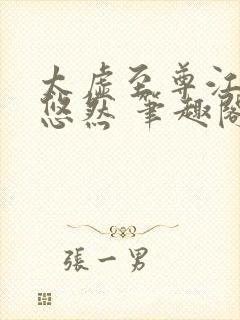 太虚至尊江
悠然 筆趣閣
張一男